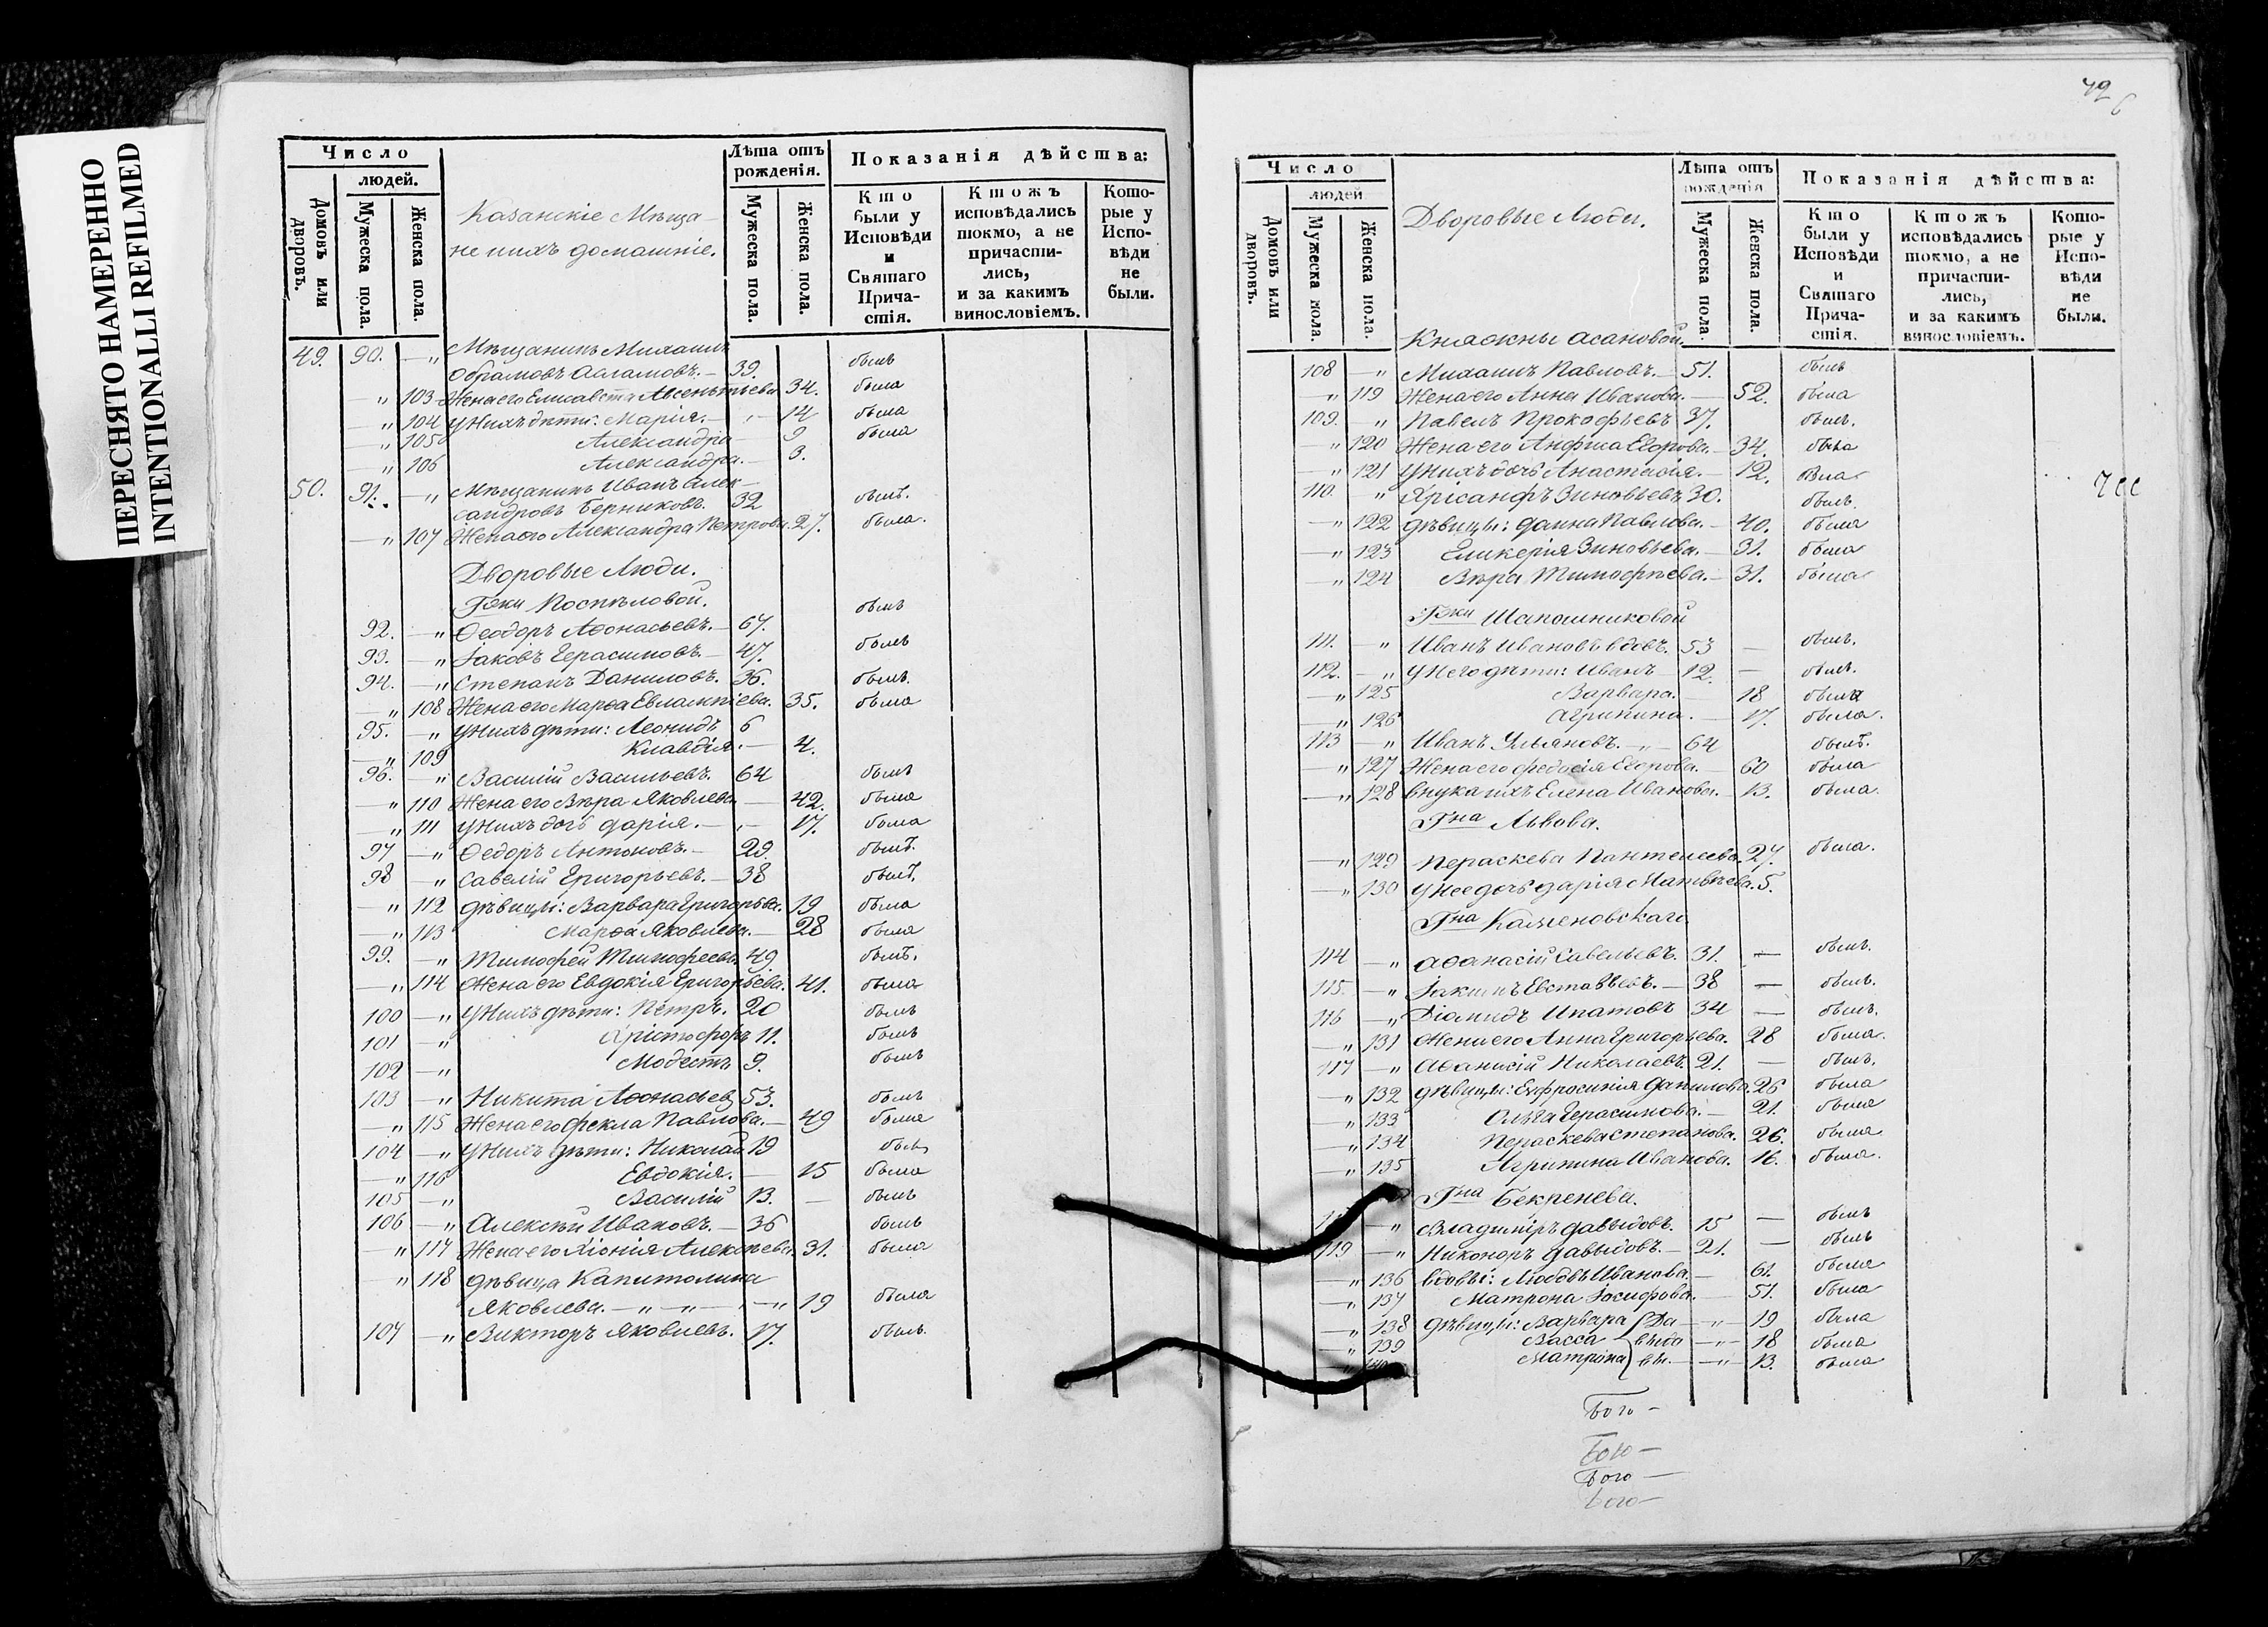 ПЕРЕСНЯТО НАМЕРЕННО
INTENTIONALLI REFILMED
Число
людей.
Домовъ или дворовъ.
Мужеска пола.
Женска пола.
Казанскіе Мѣща-
не и ихъ домашніе.
Лѣта отъ рожденія.
Мужеска пола.
Женска пола.
Показанія дѣйства:
Кто были у Исповѣди и Святаго Прича-стія.
Ктожъ исповѣдались токмо, а не причасти-лись, и за какимъ винословіемъ.
Кото-рые у Испо-вѣди не были.
49. 90. —„ Мѣщанинъ Михаилъ
Абрамовъ Асламовъ. — 39. былъ
—„ 103 Жена его Елисавета Авсентьева 34. была
—„ 104 У нихъ дѣти: Марія. — 14 была
—„ 105 Александра 9 была
—„ 106 Александра. — 3.
50. 91. —„ Мѣщанинъ Иванъ Алек-
сандровъ Берниковъ. 32 былъ.
—„ 107 Жена его Александра Петрова. 27. была.
Дворовые Люди.
Гжи Поспѣловой.
92. —„ Ѳеодоръ Аѳонасьевъ. — 67. былъ
93. —„ Іаковъ Герасимовъ. — 47. былъ
94. —„ Степанъ Даниловъ. 36. былъ.
—„ 108 Жена его Марѳа Евлампіева. 35. была
95. —„ У нихъ дѣти: Леонидъ 6
—„ 109 Клавдія. — 4.
96. —„ Василій Васильевъ. 64 былъ
—„ 110 Жена его Вѣра Яковлева — 42. была
—„ 111 У нихъ дочь Дарія. — 17. была
97 —„ Ѳедоръ Антоновъ. — 29. былъ.
98 —„ Савелій Григорьевъ. — 38 былъ.
—„ 112 Дѣвицы: Варвара Григорьева. 19 была
—„ 113 Марѳа Яковлева. — 28 была
99. —„ Тимофей Тимофеевъ. 49. былъ.
—„ 114 Жена его Евдокія Григорьева. 41. была
100 —„ У нихъ дѣти: Петръ. 20 былъ
101 —„ Христофоръ 11. былъ
102 —„ Модестъ 9. былъ
103 —„ Никита Аѳонасьевъ 53. былъ
—„ 115 Жена его Фекла Павлова. — 49 была
104 —„ У нихъ дѣти: Николай 19 былъ
—„ 116 Евдокія. — 15 была
105 —„ Василій 13. — былъ
106 —„ Алексѣй Ивановъ. — 36 былъ
—„ 117 Жена его Хіонія Алексѣева. 31. была
—„ 118 Дѣвица Капитолина
Яковлева. —„—„— —„ 19 была
107 —„ Викторъ Яковлевъ. 17. былъ.
42
6
Число
людей
Домовъ или дворовъ.
Мужеска пола.
Женска пола.
Дворовые Люди.
Лѣта отъ рожденія
Мужеска пола
Женска пола.
Показанія дѣйства:
Кто были у Исповѣди и Святаго Прича-стія.
Ктожъ исповѣдались токмо, а не причасти-лись, и за какимъ винословіемъ.
Кото-рые у Испо-вѣди не были.
Княжны Асановой.
108 —„ Михаилъ Павловъ. — 51. былъ
—„ 119 Жена его Анна Иванова. — 52. была
109. —„ Павелъ Прокофьевъ 37. былъ.
—„ 120 Жена его Анфиса Егорова. — 34. была
—„ 121 У нихъ дочь Анастасія. — 12. была
110. „ Хрісанфъ Зиновьевъ 30. былъ.
—„ 122 Дѣвицы: Данна Павлова. — 40. была
—„ 123 Гликерія Зиновьева. — 31. была
—„ 124 Вѣра Тимофѣева. — 31. была
Гжи Шапошниковой
111. —„ Иванъ Ивановъ вдовъ. 53 — былъ.
112. —„ У него дѣти: Иванъ 12. — былъ.
—„ 125 Варвара. — 18 была
—„ 126 Агрипина. — 17. была.
113 —„ Иванъ Ульяновъ. —„— 64 былъ.
—„ 127 Жена его Федосія Егорова. — 60 была
—„ 128 Внука ихъ Елена Иванова. — 13. была.
Гна Львова.
—„ 129 Пераскева Пантелеева. 27. была.
—„ 130 У нее дочь Дарія Матвѣева. 5.
Гна Каменовскаго
114 —„ Аѳанасій Савельевъ. 31. — былъ.
115. —„ Іакимъ Евставьевъ. — 38 — былъ.
116 —„ Діомидъ Ипатовъ 34 — былъ.
—„ 131 Жена его Анна Григорьева. 28 была.
117 —„ Аѳанасій Николаевъ. 21. — былъ.
—„ 132 Дѣвицы: Евфросинія Данилова. 26 была
—„ 133 Ольга Герасимова. — 21. была
—„ 134 Пераскева Степанова. 26. была.
—„ 135 Агрипина Иванова. 16. была.
Гна Бекренева.
—„ Владиміръ Давыдовъ. 15 — былъ
119 —„ Никоноръ Давыдовъ. — 21. — былъ
—„ 136 Вдовы: Любовь Иванова. — 61. была
—„ 137 Матрона Іосифова. — 51. была
—„ 138 Дѣвицы: Варвара Да —„— 19 была
—„ 139 Васса выдо —„— 18 была
Матрона вы. —„— 13. была
Бого —
Бого —
Бого —
Бого —